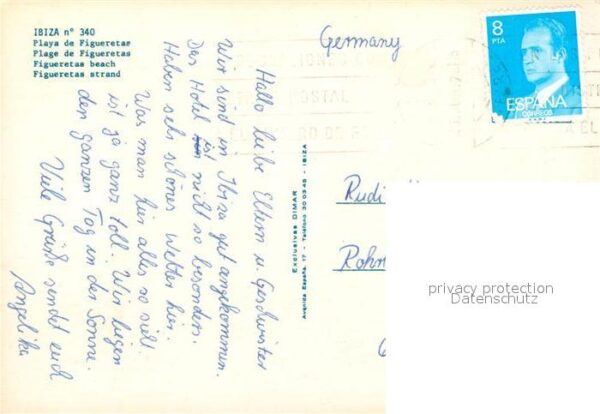 IBIZA nº 340
Playa de Figueretas
Plage de Figueretas
Figueretas beach
Figueretas strand
Hallo liebe Eltern u. Geschwister
Wir sind in Ibiza gut angekommen.
Das Hotel ist nicht so besonders.
Haben sehr schönes Wetter hier.
Was man hier alles so sieht
ist ja ganz toll. Wir liegen
den ganzen Tag in der Sonne.
Viele Grüße sendet euch
Angelika
Exclusivas DIMAR
Avenida España, 17 - Teléfono 30 03 45 - IBIZA
Germany
8
PTA
ESPAÑA
CORREOS
POSTAL
Rudi
Rohr
privacy protection
Datenschutz